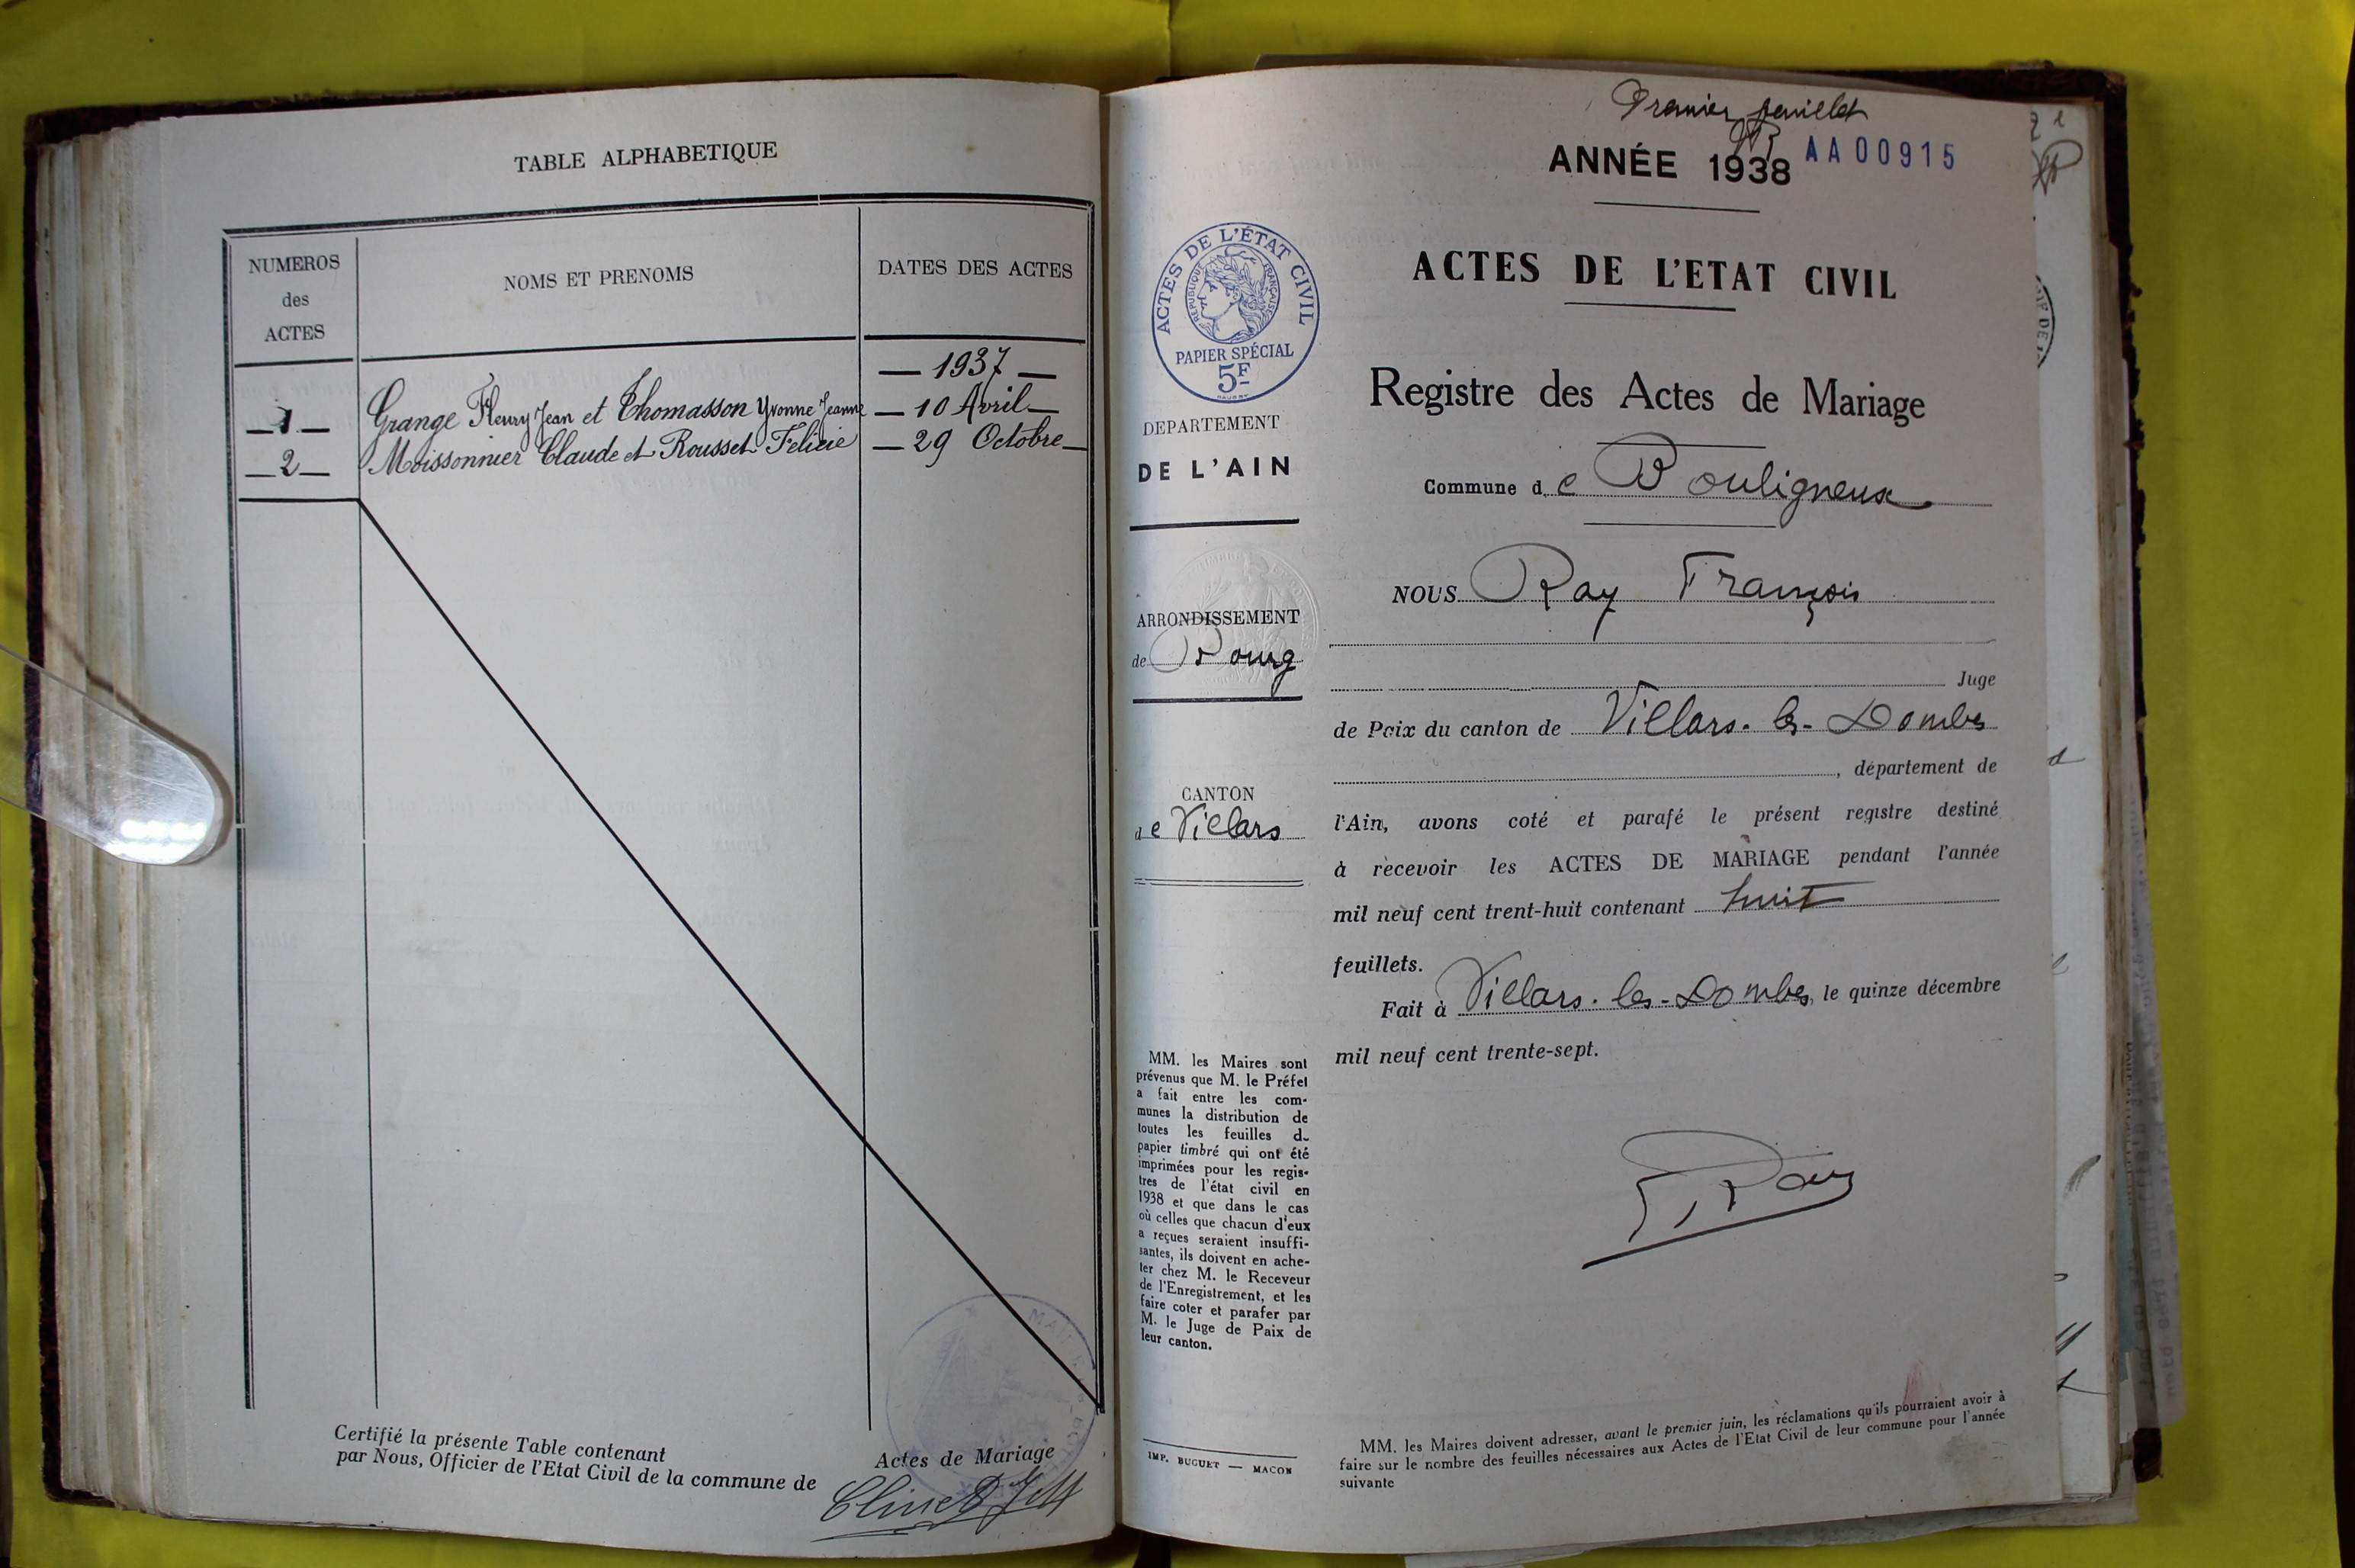 TABLE ALPHABETIQUE
NUMEROS
des
ACTES
NOMS ET PRENOMS
DATES DES ACTES
— 1937 —
— 1 — Grange Fleury Jean et Thomasson Yvonne Jeanne — 10 Avril —
— 2 — Moissonnier Claude et Rousset Felicie — 29 Octobre —
Certifié la présente Table contenant
Actes de Mariage
par Nous, Officier de l'Etat Civil de la commune de
Premier feuillet
ANNÉE 1938
AA00915
ACTES DE L'ÉTAT CIVIL
RÉPUBLIQUE FRANÇAISE
PAPIER SPÉCIAL
5F
DEPARTEMENT
DE L'AIN
ARRONDISSEMENT
de Bourg
CANTON
de Villars
MM. les Maires sont
prévenus que M. le Préfet
a fait entre les com-
munes la distribution de
toutes les feuilles de
papier timbré qui ont été
imprimées pour les regis-
tres de l'état civil en
1938 et que dans le cas
où celles que chacun d'eux
a reçues seraient insuffi-
santes, ils doivent en ache-
ter chez M. le Receveur
de l'Enregistrement, et les
faire coter et parafer par
M. le Juge de Paix de
leur canton.
IMP. BUGUET — MACON
ACTES DE L'ETAT CIVIL
Registre des Actes de Mariage
Commune de Bouligneux
NOUS Ray François
Juge
de Paix du canton de Villars-les-Dombes
, département de
l'Ain, avons coté et parafé le présent registre destiné
à recevoir les ACTES DE MARIAGE pendant l'année
mil neuf cent trent-huit contenant huit
feuillets.
Fait à Villars-les-Dombes, le quinze décembre
mil neuf cent trente-sept.
F Ray
MM. les Maires doivent adresser, avant le premier juin, les réclamations qu'ils pourraient avoir à
faire sur le nombre des feuilles nécessaires aux Actes de l'Etat Civil de leur commune pour l'année
suivante